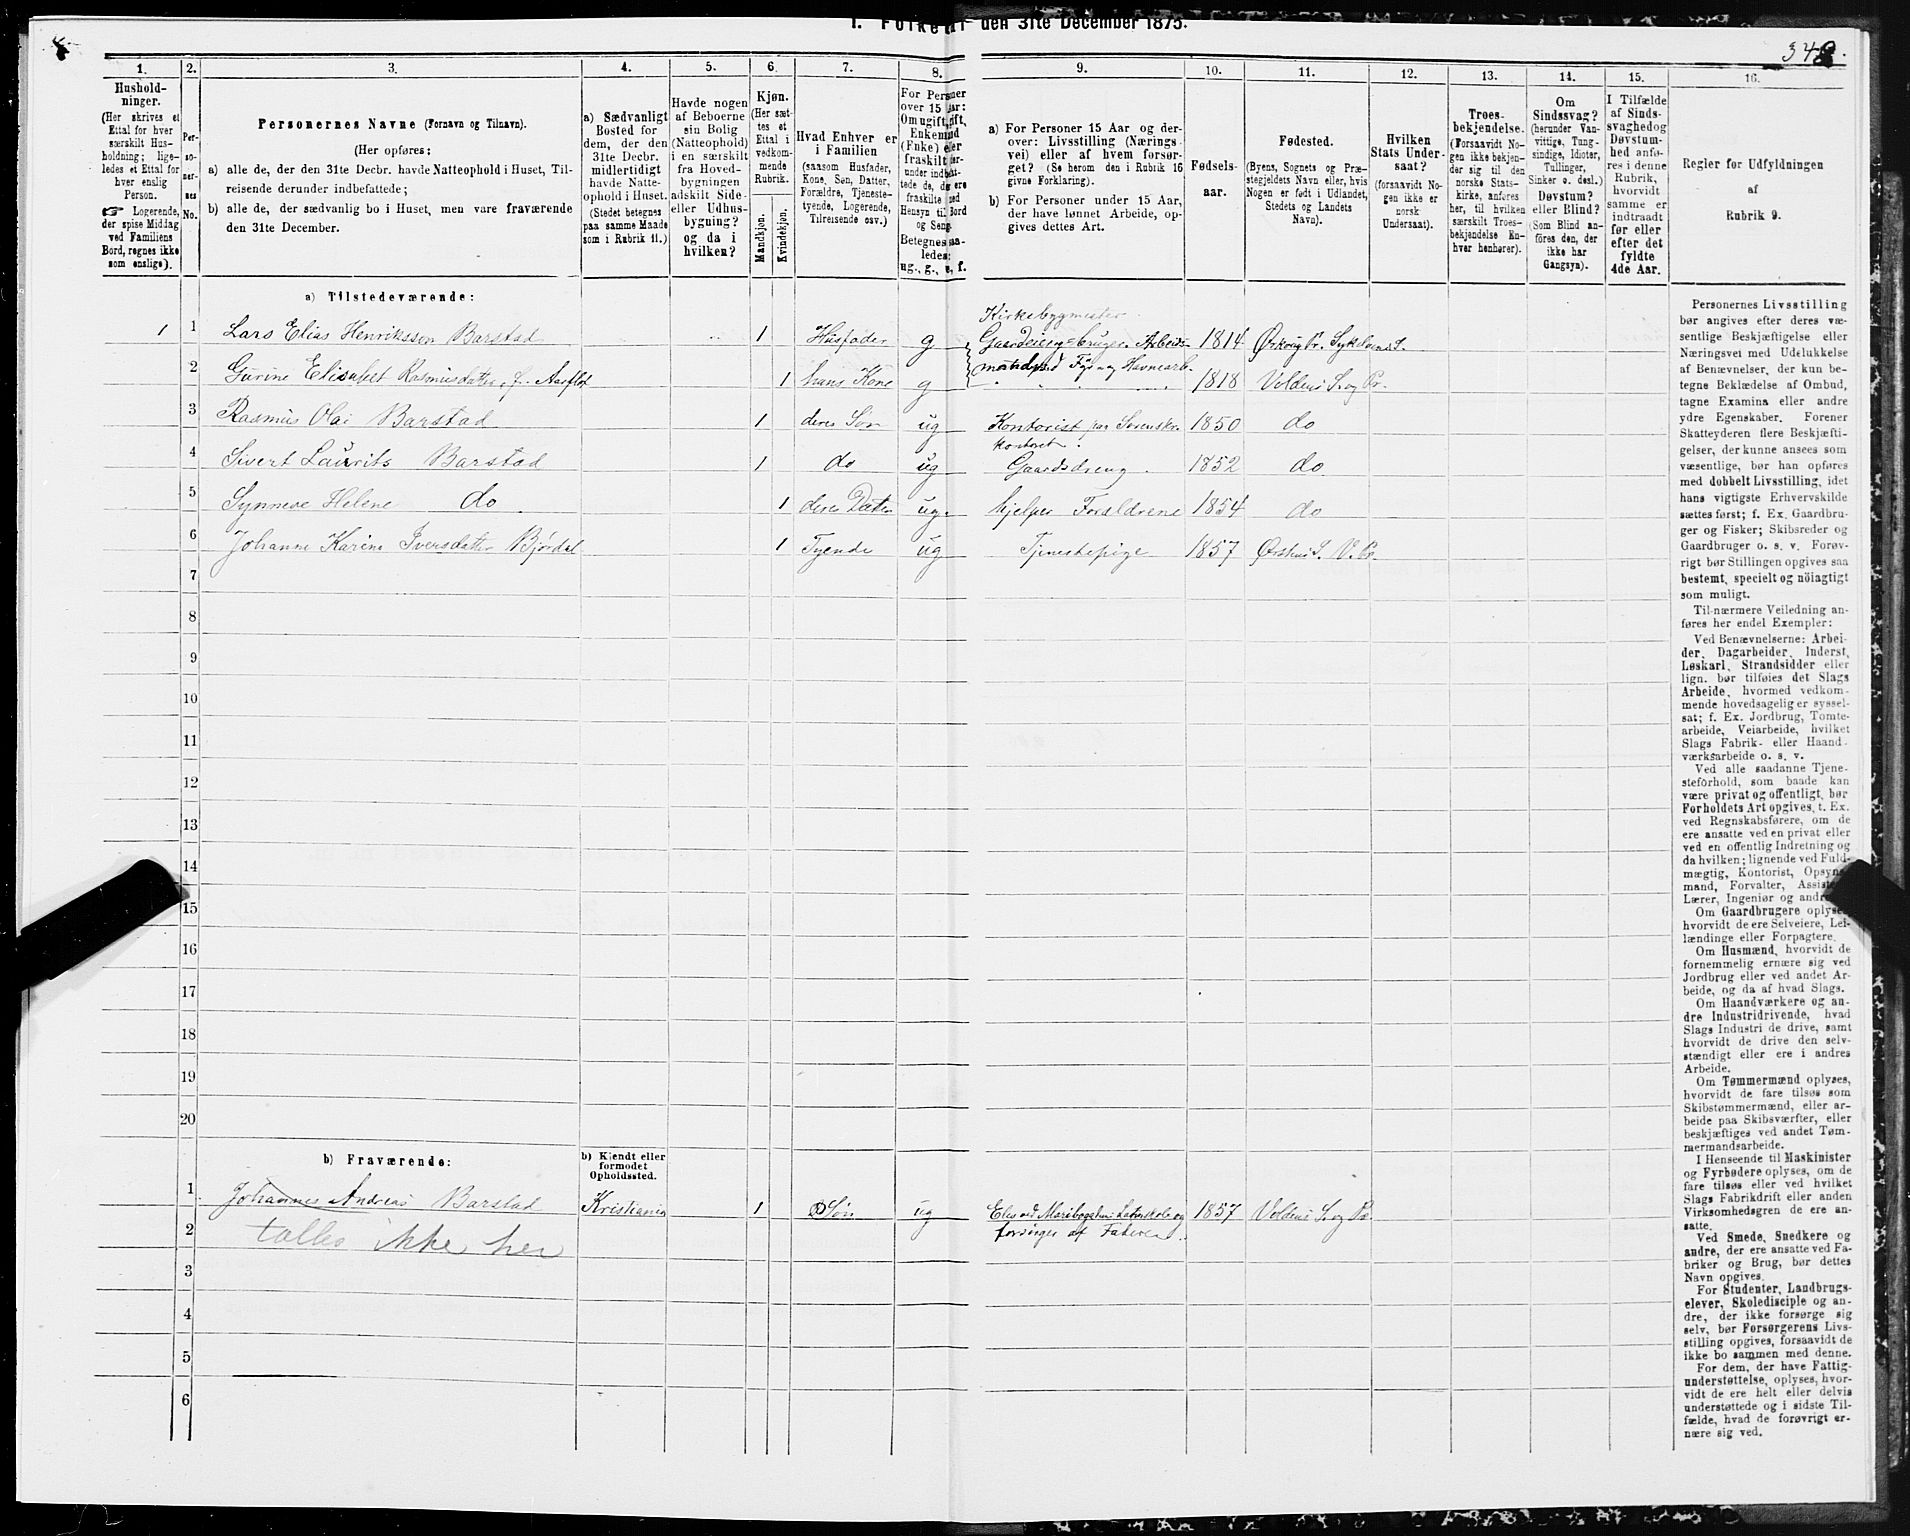 1. Folketal den 31te December 1875.
348.
1.
Hushold-
ninger.
(Her skrives et
Ettal for hver
særskilt Hus-
holdning; lige-
ledes et Ettal for
hver enslig
Person.
Logerende,
der spise Middag
ved Familiens
Bord, regnes ikke
som enslige).
2.
Per-
so-
ner-
nes
No.
3.
Personernes Navne (Fornavn og Tilnavn).
(Her opføres:
a) alle de, der den 31te Decbr. havde Natteophold i Huset, Til-
reisende derunder indbefattede;
b) alle de, der sædvanlig bo i Huset, men vare fraværende
den 31te December.
4.
a) Sædvanligt
Bosted for
dem, der den
31te Decbr.
midlertidigt
havde Natte-
ophold i Huset.
(Stedet betegnes
paa samme Maade
som i Rubrik 11.)
5.
Havde nogen
af Beboerne
sin Bolig
(Natteophold)
i en særskilt
fra Hoved-
bygningen
adskilt Side-
eller Udhus-
bygning?
og da i
hvilken?
6.
Kjøn.
(Her sæt-
tes et
Ettal i
vedkom-
mende
Rubrik.
Mandkjøn.
Kvindekjøn.
7.
Hvad Enhver er
i Familien
(saasom Husfader,
Kone, Søn, Datter,
Forældre, Tjeneste-
tyende, Logerende,
Tilreisende osv.)
8.
For Personer
over 15 Aar:
Om ugift, gift,
Enkemand
(Enke) eller
fraskilt
Betegnes saa-
ledes:
ug., g., e, f.
9.
a) For Personer 15 Aar og der-
over: Livsstilling (Nærings-
vei) eller af hvem forsør-
get? (Se herom den i Rubrik 16
givne Forklaring).
b) For Personer under 15 Aar,
der have lønnet Arbeide, op-
gives dettes Art.
10.
Fødsels-
aar.
11.
Fødested.
(Byens, Sognets og Præ-
stegjeldets Navn eller, hvis
Nogen er født i Udlandet,
Stedets og Landets
Navn).
12.
Hvilken
Stats Under-
saat?
(forsaavidt No-
gen ikke er
norsk
Undersaat).
13.
Troes-
bekjendelse.
(Forsaavidt No-
gen ikke bekjen-
der sig til den
norske Stats-
kirke, anføres
her, til hvilken
særskilt Troes-
bekjendelse En-
hver henhører).
14.
Om
Sindssvag?
(herunder Van-
vittige, Tung-
sindige, Idioter,
Tullinger,
Sinker o. desl.)
Døvstum?
eller Blind?
(Som Blind an-
føres den, der
ikke har
Gangsyn).
15.
I Tilfælde
af Sinds-
svaghed og
Døvstum-
hed anfø-
res i denne
Rubrik,
hvorvidt
samme er
indtraadt
før eller
efter det
fyldte
4de Aar.
16.
Regler for Udfyldningen
af
Rubrik 9.
a) Tilstedeværende:
Kirkebygmester
1 1 Lars Elias Henrikssen Barstad 1 Husfader g Gaardeier og =bruger. Arbeids- 1814 Ørskoug Pr. Sykelvens S.
mand ved Fyr= og Havnearb.
2 Gurine Elisabet Rasmusdatter, f. Aasflot 1 hans Kone g 1818 Voldens S. og Pr.
3 Rasmus Olai Barstad 1 deres Søn ug Kontorist paa Sorenskr. 1850 do
kontoret.
4 Sivert Laurits Barstad 1 do ug Gaardsdreng. 1852 do
5 Synneve Helene do 1 deres Datter ug. hjelper Forældrene 1854 do
6 Johanne Karine Iversdatter Bjørdal 1 Tyende ug Tjenestepige 1857 Ørstens S. V. Pr.
7
8
9
10
11
12
13
14
15
16
17
18
19
20
b) Fraværende:
b) Kjendt eller
formodet
Opholdssted.
1 Johannes Andreas Barstad Kristiania 1 Søn ug Elev ved Maribogadens Latinskole og 1857 Voldens S. og Pr.
forsørges af Faderen.
2 tælles ikke her
3
4
5
6
Personernes Livsstilling
bør angives efter deres væ-
sentlige Beskjæftigelse eller
Næringsvei med Udelukkelse
af Benævnelser, der kun be-
tegne Beklædelse af Ombud,
tagne Examina eller andre
ydre Egenskaber. Forener
Skatteyderen flere Beskjæfti-
gelser, der kunne ansees som
væsentlige, bør han opføres
med dobbelt Livsstilling, idet
hans vigtigste Erhvervskilde
sættes først; f. Ex. Gaardbru-
ger og Fisker; Skibsreder og
Gaardbruger o. s. v. Forøv-
rigt bør Stillingen opgives saa
bestemt, specielt og nöiagtigt
som muligt.
Til nærmere Veiledning an-
føres her endel Exempler:
Ved Benævnelserne: Arbei-
der, Dagarbeider, Inderst,
Løskarl, Strandsidder eller
lign. bør tilføies det Slags
Arbeide, hvormed vedkom-
mende hovedsagelig er syssel-
sat; f. Ex. Jordbrug, Tomte-
arbeide, Veiarbeide, hvilket
Slags Fabrik- eller Haand-
værksarbeide o. s. v.
Ved alle saadanne Tjene-
steforhold, som baade kan
være privat og offentligt, bør
Forholdets Art opgives, t. Ex.
ved Regnskabsførere, om de
ere ansatte ved en privat eller
ved en offentlig Indretning og
da hvilken; lignende ved Fuld-
mægtig, Kontorist, Opsyns-
mand, Forvalter, Assistent,
Lærer, Ingeniør og andre.
Om Gaardbrugere oplyses,
hvorvidt de ere Selveiere, Lei-
lændinge eller Forpagtere.
Om Husmænd, hvorvidt de
fornemmelig ernære sig ved
Jordbrug eller ved andet Ar-
beide, og da af hvad Slags.
Om Haandværkere og an-
dre Industridrivende, hvad
Slags Industri de drive, samt
hvorvidt de drive den selv-
stændigt eller ere i andres
Arbeide.
Om Tømmermænd oplyses,
hvorvidt de fare tilsøs som
Skibstømmermænd, eller ar-
beide paa Skibsværfter, eller
beskjæftiges ved andet Tøm-
mermandsarbeide.
I Henseende til Maskinister
og Fyrbødere oplyses, om de
fare tilsøs eller ved hvilket
Slags Fabrikdrift eller anden
Virksomhedsgren de ere an-
satte.
Ved Smede, Snedkere og
andre, der ere ansatte ved Fa-
briker og Brug, bør dettes
Navn opgives.
For Studenter, Landbrugs-
elever, Skoledisciple og an-
dre, der ikke forsørge sig
selv, bør Forsørgerens Livs-
stilling opgives, forsaavidt de
ikke bo sammen med denne.
For dem, der have Fattig-
understøttelse, oplyses, hvor-
vidt de ere helt eller delvis
understøttede og i sidste Til-
fælde, hvad de forøvrigt er-
nære sig ved.